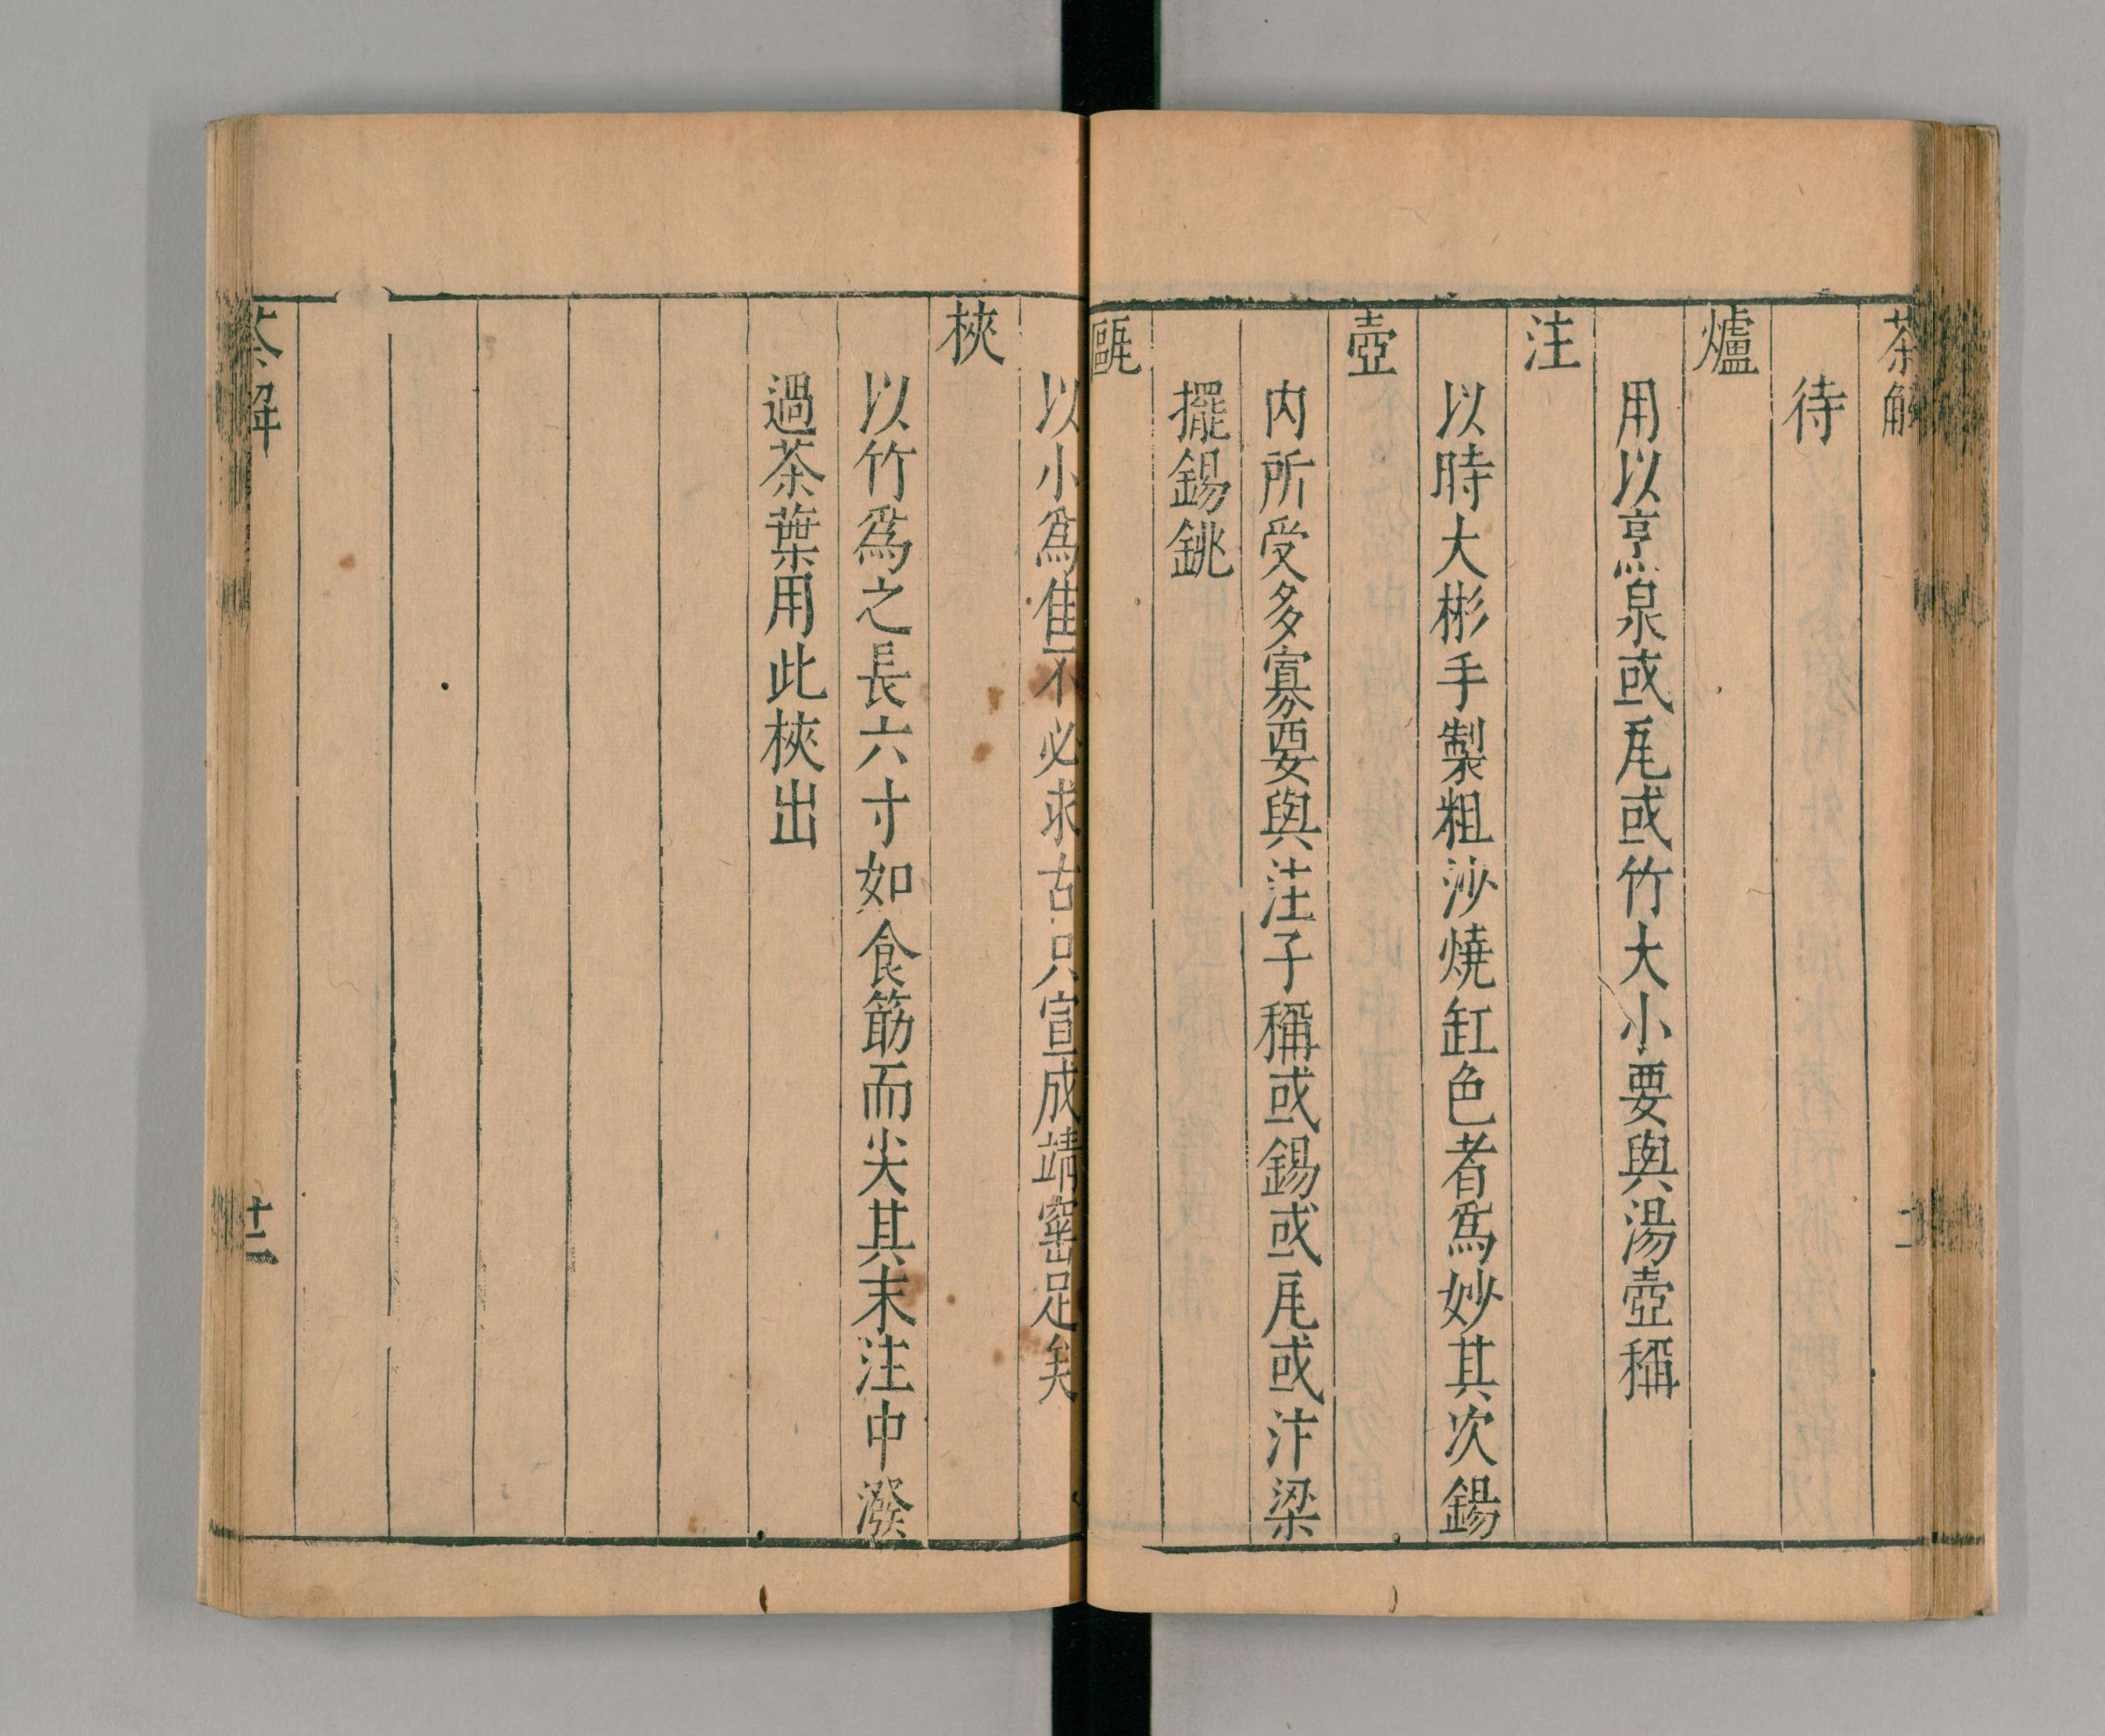 茶解
待
爐
用以烹泉或瓦或竹大小要與湯壺稱
注
以時大彬手製粗沙燒缸色者爲妙其次錫
壺
内所受多寡要與注子稱或錫或瓦或汴梁
擺錫銚
甌
以小爲隹不必求古只宣成靖窰足矣
梜
以竹爲之長六寸如食筯而尖其末注中潑
過茶葉用此梜出
茶解
十二